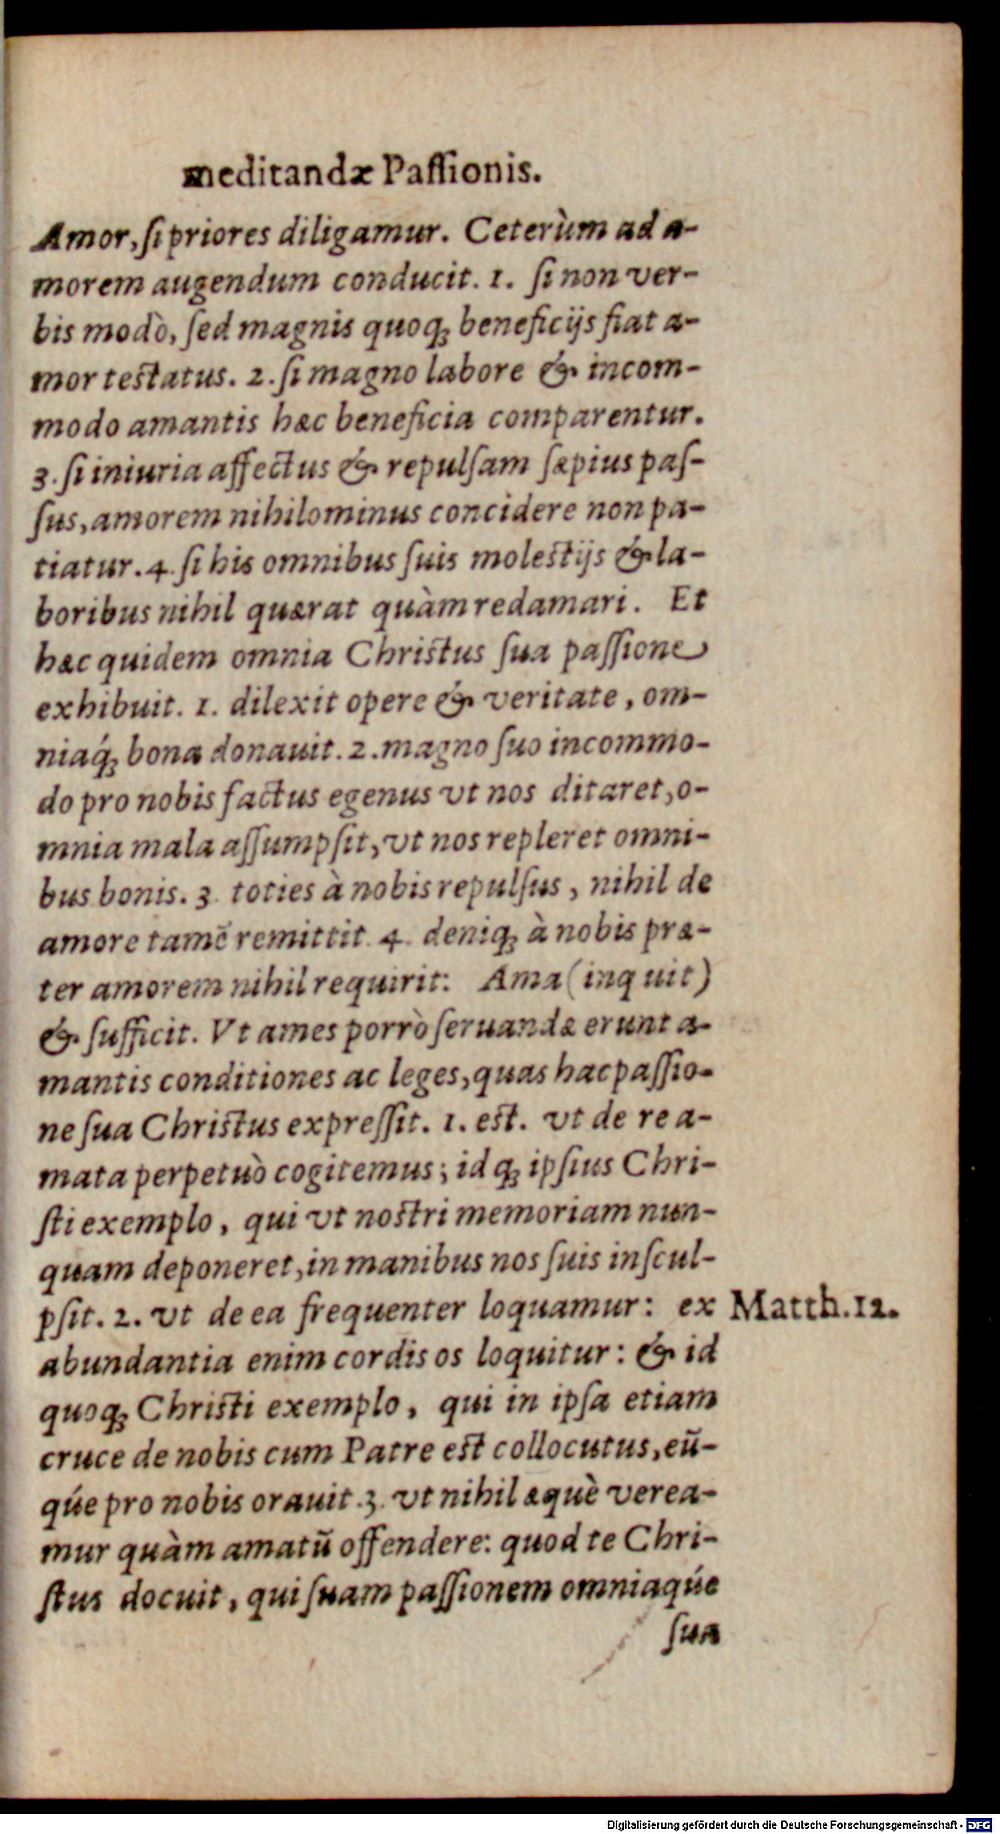 meditandæ Paſſionis.
Amor, ſi priores diligamur. Ceterùm ad a-
morem augendum conducit. 1. ſi non ver-
bis modò, ſed magnis quoq; beneficijs fiat a-
mor teſtatus. 2. ſi magno labore & incom-
modo amantis hæc beneficia comparentur.
3. ſi iniuria affectus & repulſam ſæpius paſ-
ſus, amorem nihilominus concidere non pa-
tiatur. 4. ſi his omnibus ſuis moleſtijs & la-
boribus nihil quærat quàm redamari. Et
hæc quidem omnia Chriſtus ſua paſſione
exhibuit. 1. dilexit opere & veritate, om-
niaq́; bona donauit. 2. magno ſuo incommo-
do pro nobis factus egenus vt nos ditaret, o-
mnia mala aſſumpſit, vt nos repleret omni-
bus bonis. 3. toties à nobis repulſus, nihil de
amore tamẽ remittit. 4. deniq; à nobis præ-
ter amorem nihil requirit: Ama (inquit)
& ſufficit. Vt ames porrò ſeruandæ erunt a-
mantis conditiones ac leges, quas hac paſſio-
ne ſua Chriſtus expreſſit. 1. eſt. vt de re a-
mata perpetuò cogitemus; id q; ipſius Chri-
ſti exemplo, qui vt noſtri memoriam nun-
quam deponeret, in manibus nos ſuis inſcul-
pſit. 2. vt de ea frequenter loquamur: ex
Matth. 12.
abundantia enim cordis os loquitur: & id
quoq; Chriſti exemplo, qui in ipſa etiam
cruce de nobis cum Patre eſt collocutus, eũ-
q́ue pro nobis orauit. 3. vt nihil æquè verea-
mur quàm amatũ offendere: quod te Chri-
ſtus docuit, qui ſuam paſſionem omniaq́ue
ſua
Digitalisierung gefördert durch die Deutsche Forschungsgemeinschaft - DFG